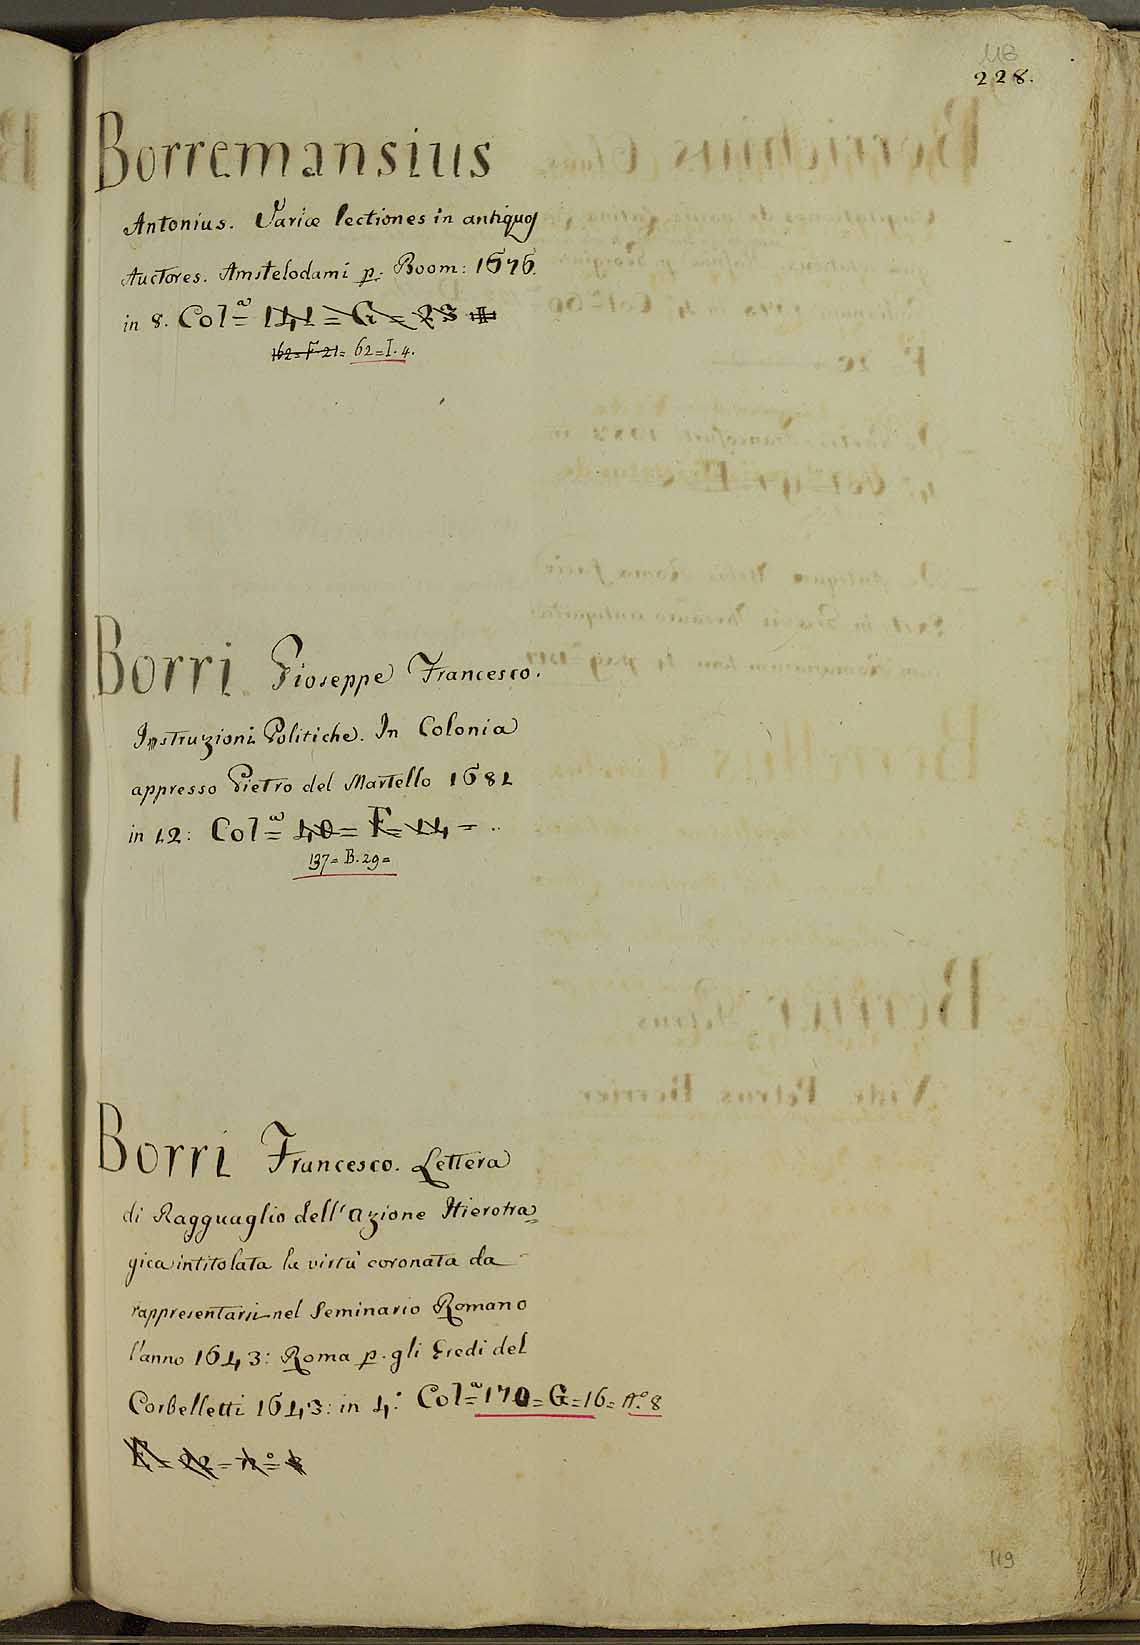 118
228.
Borremansius
Antonius. Variæ lectiones in antiquos
Auctores. Amstelodami p. Boom: 1676.
in 8. Colª= 141 = G = 23 =
162=F.21= 62=I.4.
Borri Gioseppe Francesco.
Instruzioni Politiche. In Colonia
appresso Pietro del Martello 1681
in 12: Colª= 40= F= 14 =
137= B. 29=
Borri Francesco. Lettera
di Ragguaglio dell'azione Hierotra=
gica intitolata la virtù coronata da
rappresentarsi nel Seminario Romano
l'anno 1643: Roma p. gli Eredi del
Corbelletti 1643: in 4: Colª= 170= G=16= n.º 8
= 22 = n.º 8
119